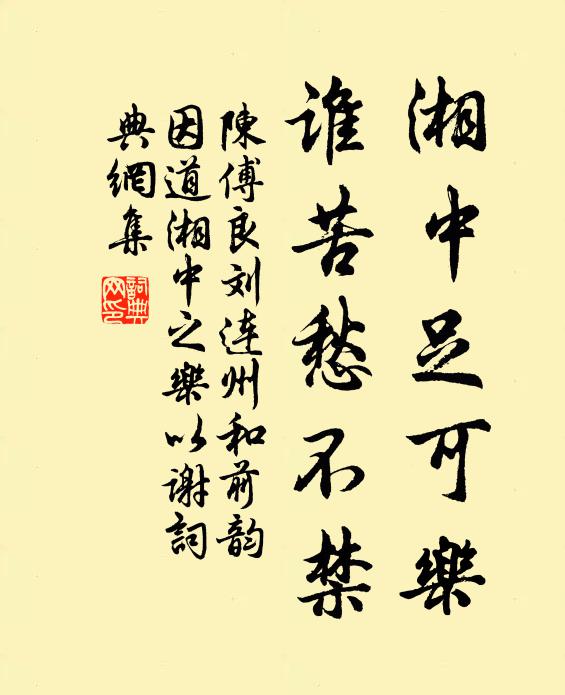 湘中足可樂
誰苦愁不禁
陳傅良刘連州和前韵
因道湘中之樂以谢詞
典網集
詞典
网印